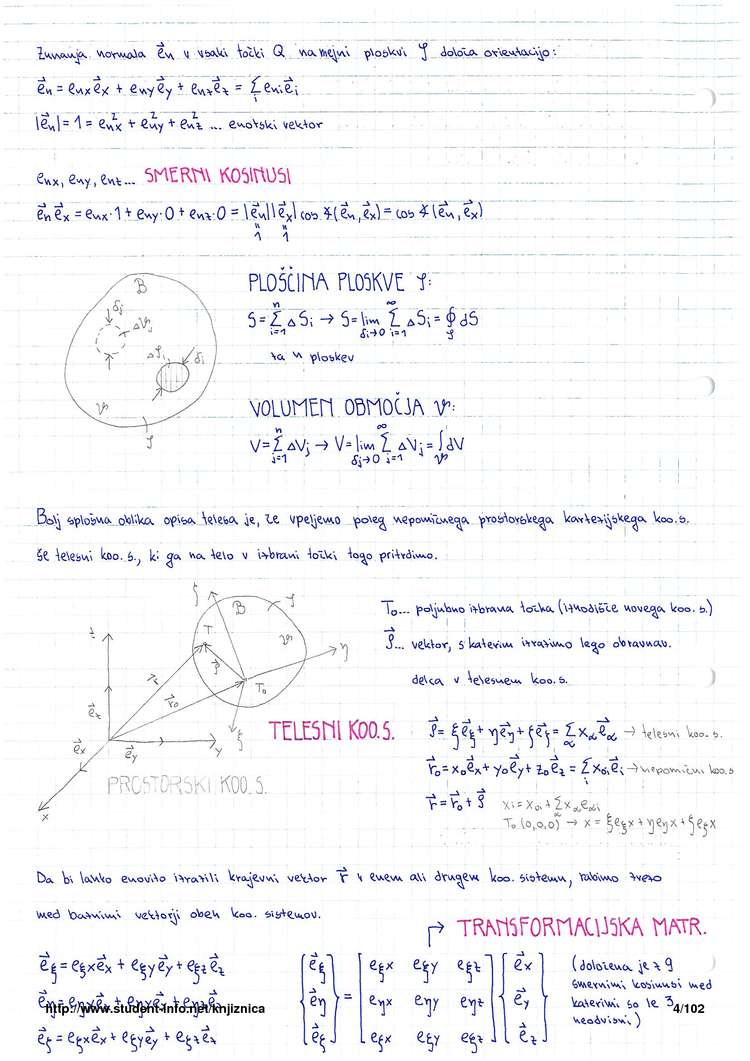 Zunanja normala e⃗n v vsaki točki Q na mejni ploskvi S določa orientacijo:
e⃗n = enx e⃗x + eny e⃗y + enz e⃗z = Σi eni e⃗i
|e⃗n| = 1 = enx² + eny² + enz² ... enotski vektor
enx, eny, enz... SMERNI KOSINUSI
e⃗n e⃗x = enx·1 + eny·0 + enz·0 = |e⃗n||e⃗x| cos ∢(e⃗n, e⃗x) = cos ∢(e⃗n, e⃗x)
1 1
B
δj
ΔVj
ΔSi
δi
V
S
PLOŠČINA PLOSKVE S:
S = Σ(i=1)^n ΔSi → S = lim(δi→0) Σ(i=1)^∞ ΔSi = ∮S dS
za n ploskev
VOLUMEN OBMOČJA V:
V = Σ(j=1)^n ΔVj → V = lim(δj→0) Σ(j=1)^∞ ΔVj = ∫V dV
Bolj splošna oblika opisa telesa je, če vpeljemo poleg nepomičnega prostorskega kartezijskega koo.s.
še telesni koo.s., ki ga na telo v izbrani točki togo pritrdimo.
ζ
B
S
T
V
η
z
r⃗
ρ⃗
T0
r⃗0
e⃗z
ξ
e⃗x
e⃗y
y
x
TELESNI KOO.S.
PROSTORSKI KOO.S.
T0... poljubno izbrana točka (izhodišče novega koo.s.)
ρ⃗... vektor, s katerim izrazimo lego obravnav.
delca v telesnem koo.s.
ρ⃗ = ξe⃗ξ + ηe⃗η + ζe⃗ζ = Σα xα e⃗α → telesni koo.s.
r⃗0 = x0e⃗x + y0e⃗y + z0e⃗z = Σi x0i e⃗i → nepomični koo.s
r⃗ = r⃗0 + ρ⃗ xi = x0i + Σα xα eαi
T0 (0,0,0) → x = ξeξx + ηeηx + ζeζx
Da bi lahko enovito izrazili krajevni vektor r⃗ v enem ali drugem koo. sistemu, rabimo zvezo
med baznimi vektorji obeh koo. sistemov.
TRANSFORMACIJSKA MATR.
e⃗ξ = eξx e⃗x + eξy e⃗y + eξz e⃗z
e⃗η = eηx e⃗x + eηy e⃗y + eηz e⃗z
e⃗ζ = eζx e⃗x + eζy e⃗y + eζz e⃗z
{e⃗ξ} = [eξx eξy eξz] {e⃗x}
{e⃗η} = [eηx eηy eηz] {e⃗y}
{e⃗ζ} = [eζx eζy eζz] {e⃗z}
(določena je z 9
smernimi kosinusi med
katerimi so le 3
neodvisni)
http://www.student-info.net/knjiznica
4/102